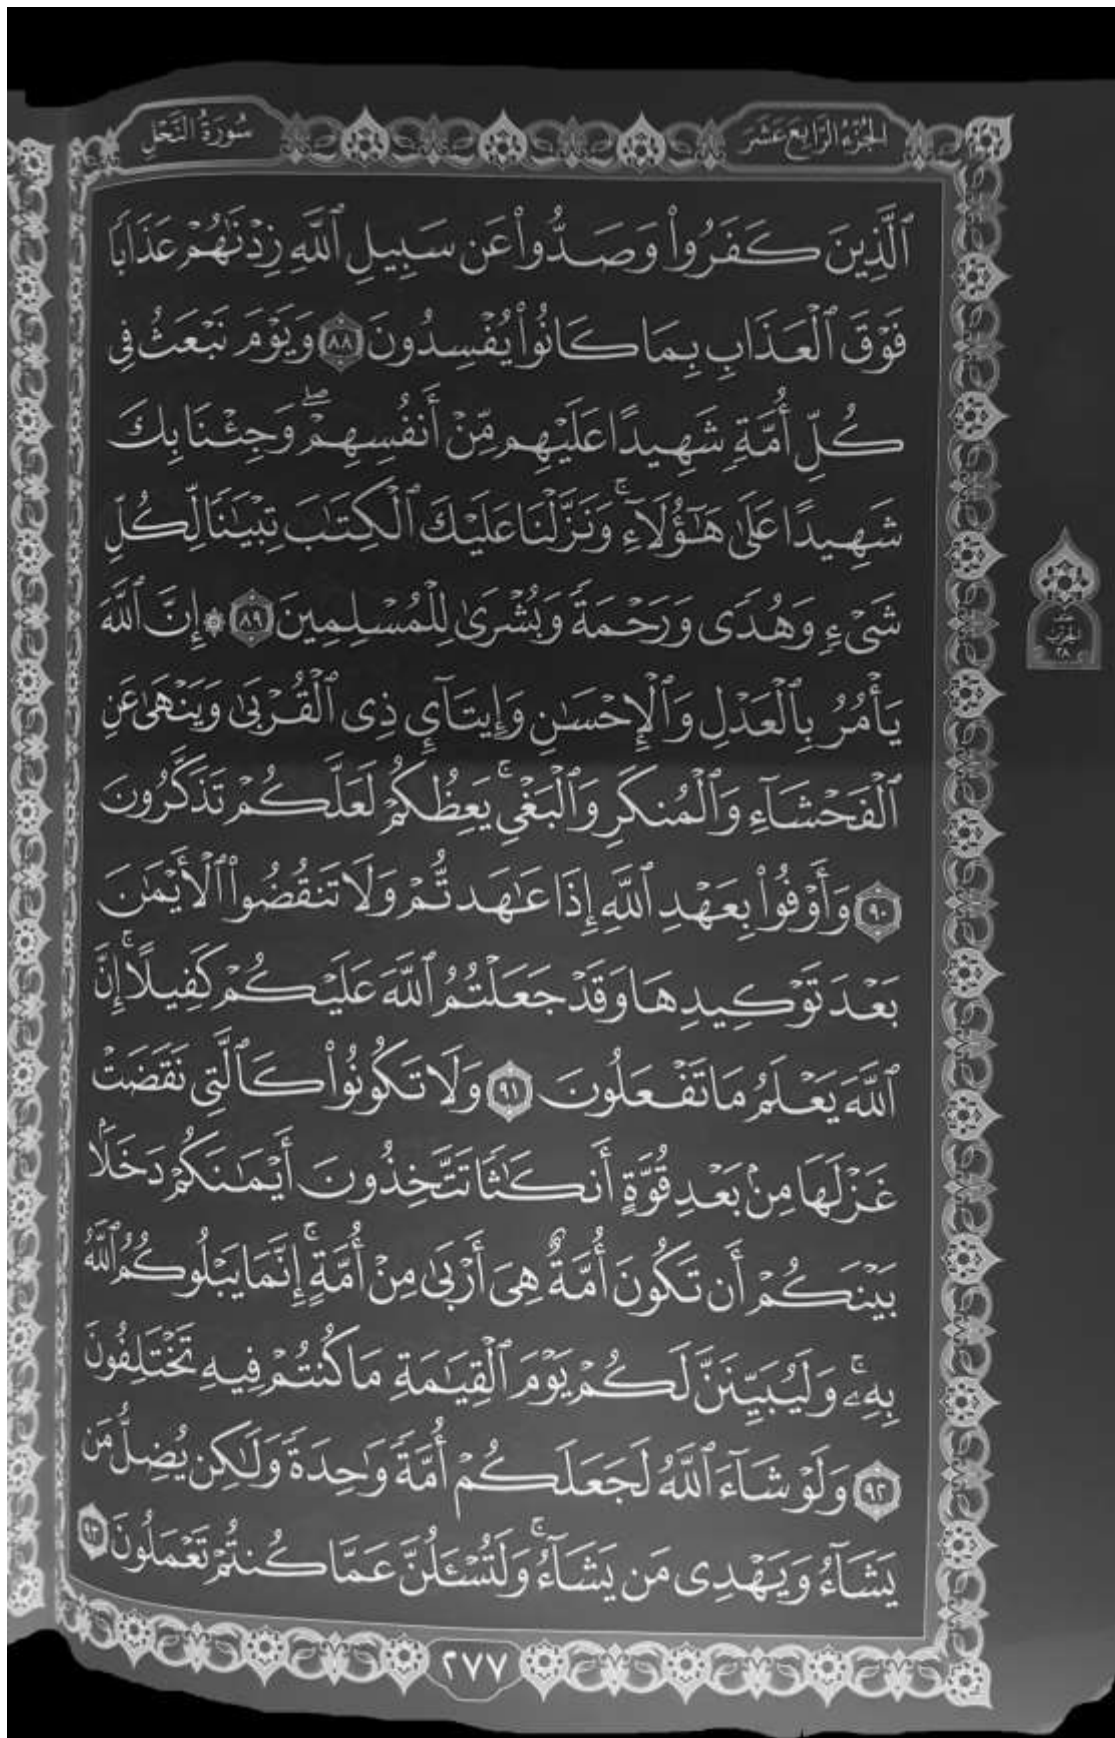 سُورَةُ النَّحْلِ
الجُزْءُ الرَّابِعَ عَشَرَ
ٱلَّذِينَ كَفَرُوا۟ وَصَدُّوا۟ عَن سَبِيلِ ٱللَّهِ زِدْنَٰهُمْ عَذَابًا
فَوْقَ ٱلْعَذَابِ بِمَا كَانُوا۟ يُفْسِدُونَ ٨٨ وَيَوْمَ نَبْعَثُ فِى
كُلِّ أُمَّةٍ شَهِيدًا عَلَيْهِم مِّنْ أَنفُسِهِمْ ۖ وَجِئْنَا بِكَ
شَهِيدًا عَلَىٰ هَٰٓؤُلَآءِ ۚ وَنَزَّلْنَا عَلَيْكَ ٱلْكِتَٰبَ تِبْيَٰنًا لِّكُلِّ
شَىْءٍ وَهُدًى وَرَحْمَةً وَبُشْرَىٰ لِلْمُسْلِمِينَ ٨٩ ۞ إِنَّ ٱللَّهَ
يَأْمُرُ بِٱلْعَدْلِ وَٱلْإِحْسَٰنِ وَإِيتَآئِ ذِى ٱلْقُرْبَىٰ وَيَنْهَىٰ عَنِ
ٱلْفَحْشَآءِ وَٱلْمُنكَرِ وَٱلْبَغْىِ ۚ يَعِظُكُمْ لَعَلَّكُمْ تَذَكَّرُونَ
٩٠ وَأَوْفُوا۟ بِعَهْدِ ٱللَّهِ إِذَا عَٰهَدتُّمْ وَلَا تَنقُضُوا۟ ٱلْأَيْمَٰنَ
بَعْدَ تَوْكِيدِهَا وَقَدْ جَعَلْتُمُ ٱللَّهَ عَلَيْكُمْ كَفِيلًا ۚ إِنَّ
ٱللَّهَ يَعْلَمُ مَا تَفْعَلُونَ ٩١ وَلَا تَكُونُوا۟ كَٱلَّتِى نَقَضَتْ
غَزْلَهَا مِنۢ بَعْدِ قُوَّةٍ أَنكَٰثًا تَتَّخِذُونَ أَيْمَٰنَكُمْ دَخَلًۢا
بَيْنَكُمْ أَن تَكُونَ أُمَّةٌ هِىَ أَرْبَىٰ مِنْ أُمَّةٍ ۚ إِنَّمَا يَبْلُوكُمُ ٱللَّهُ
بِهِۦ ۚ وَلَيُبَيِّنَنَّ لَكُمْ يَوْمَ ٱلْقِيَٰمَةِ مَا كُنتُمْ فِيهِ تَخْتَلِفُونَ
٩٢ وَلَوْ شَآءَ ٱللَّهُ لَجَعَلَكُمْ أُمَّةً وَٰحِدَةً وَلَٰكِن يُضِلُّ مَن
يَشَآءُ وَيَهْدِى مَن يَشَآءُ ۚ وَلَتُسْـَٔلُنَّ عَمَّا كُنتُمْ تَعْمَلُونَ ٩٣
الحزب
٢٨
٢٧٧